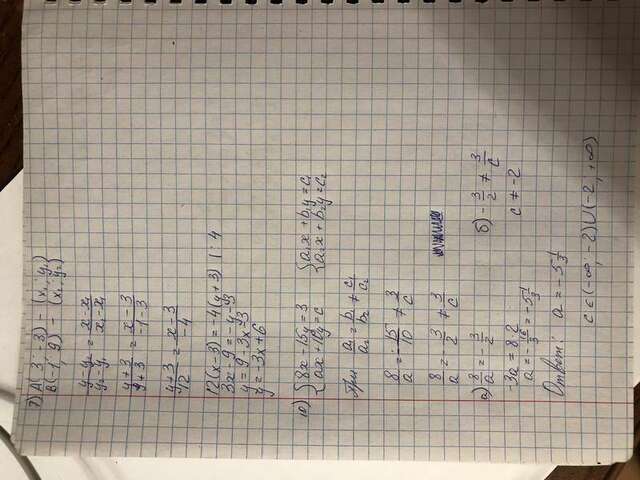 9) A(3; -3) - (x₁; y₁)
B(-1; 9) - (x₂; y₂)
(y-y₁)/(y₂-y₁) = (x-x₁)/(x₂-x₁)
(y+3)/(9+3) = (x-3)/(-1-3)
(y+3)/12 = (x-3)/-4
12(x-3) = -4(y+3) | : 4
3x-9 = -y-3
y = 9-3x-3
y = -3x+6
10) {8x-15y=3 {a₁x+b₁y=c₁
{ax+10y=c {a₂x+b₂y=c₂
При a₁/a₂ = b₁/b₂ ≠ c₁/c₂
8/a = -15/10 ≠ 3/c
8/a = -3/2 ≠ 3/c
а) 8/a = -3/2 б) -3/2 ≠ 3/c
-3a = 8·2 c ≠ -2
a = -16/3 = -5 1/3
Ответ: a = -5 1/3
c ∈ (-∞; -2)∪(-2; +∞)